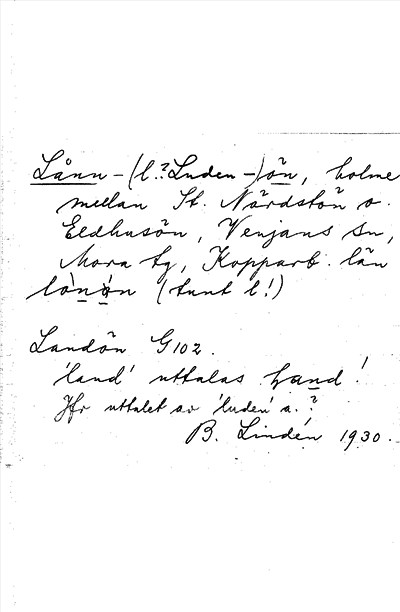 Lånn-(l.? Luden-)ön, holme
mellan St. Nordstön o.
Eldhusön, Venjans sn,
Mora tg, Kopparb. län
lònón (tunt l!)
Landön G102.
'land' uttalas hand!
Jfr uttalet av 'luden' a.?
B. Lindén 1930.